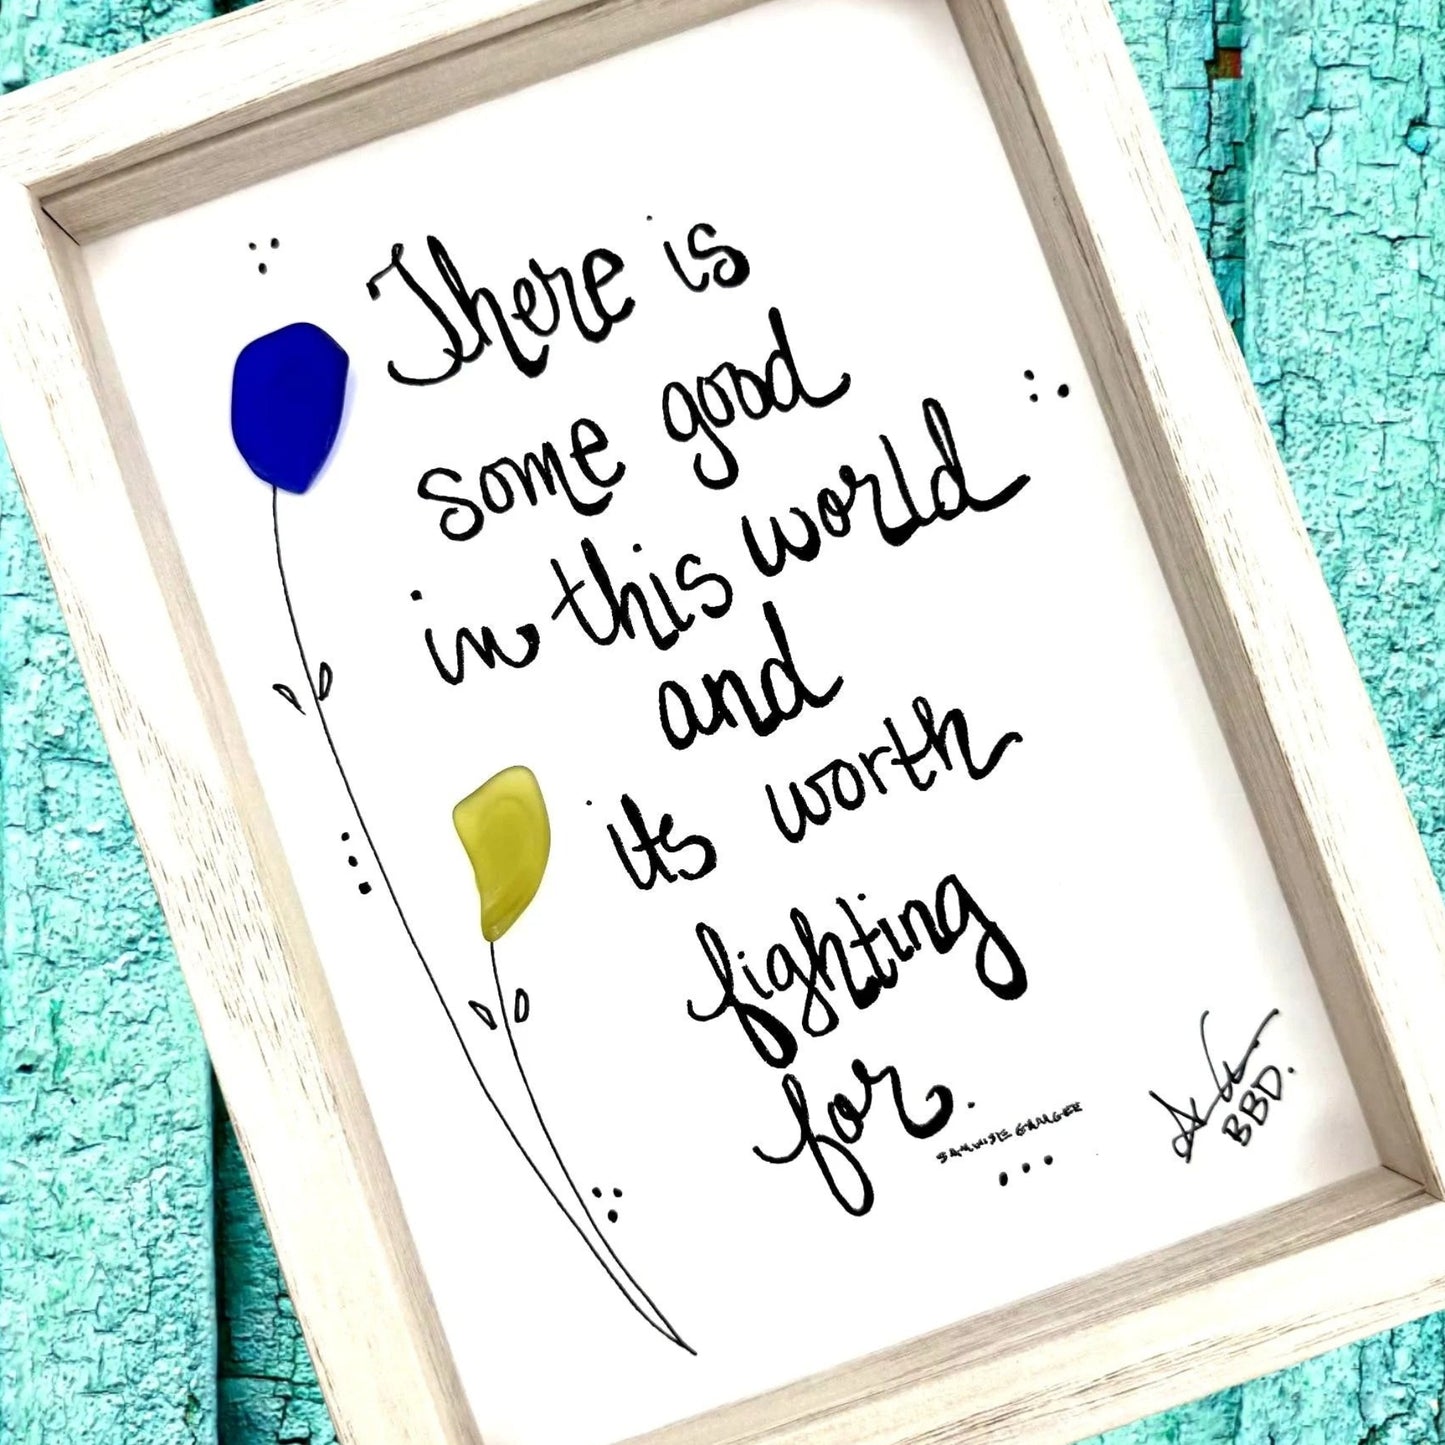 There is
some good
in this world
and
its worth
fighting
for.
SAMWISE GAMGEE
BBD.